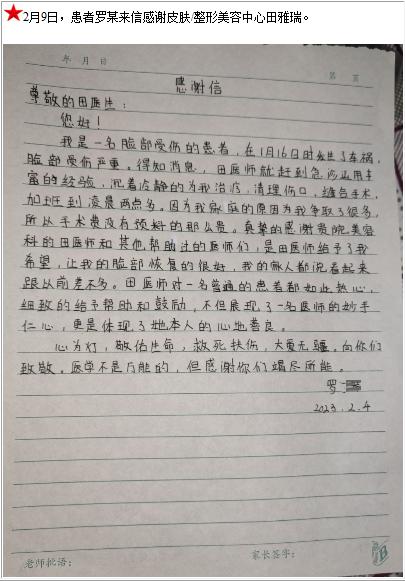 ★2月9日，患者罗某来信感谢皮肤/整形美容中心田雅瑞。
年 月 日
第 页
感谢信
尊敬的田医生：
您好！
我是一名脸部受伤的患者，在1月16日时发生了车祸，
脸部受伤严重。得知消息，田医师就赶到急诊运用丰
富的经验，沉着冷静的为我治疗，清理伤口，缝合手术，
加班到凌晨两点多。因为我家庭的原因为我争取了很多，
所以手术费没有预料的那么贵。真挚的感谢贵院美容
科的田医师和其他帮助过的医师们，是田医师给予了我
希望，让我的脸部恢复的很好，我的家人都说看起来
跟从前差不多。田医师对一名普通的患者都如此热心，
细致的给予帮助和鼓励，不但展现了一名医师的妙手
仁心，更是体现了她本人的心地善良。
心为灯，敬佑生命，救死扶伤，大爱无疆。向你们
致敬。医学不是万能的，但感谢你们竭尽所能。
罗
2023.2.4
老师批语：
家长签字：